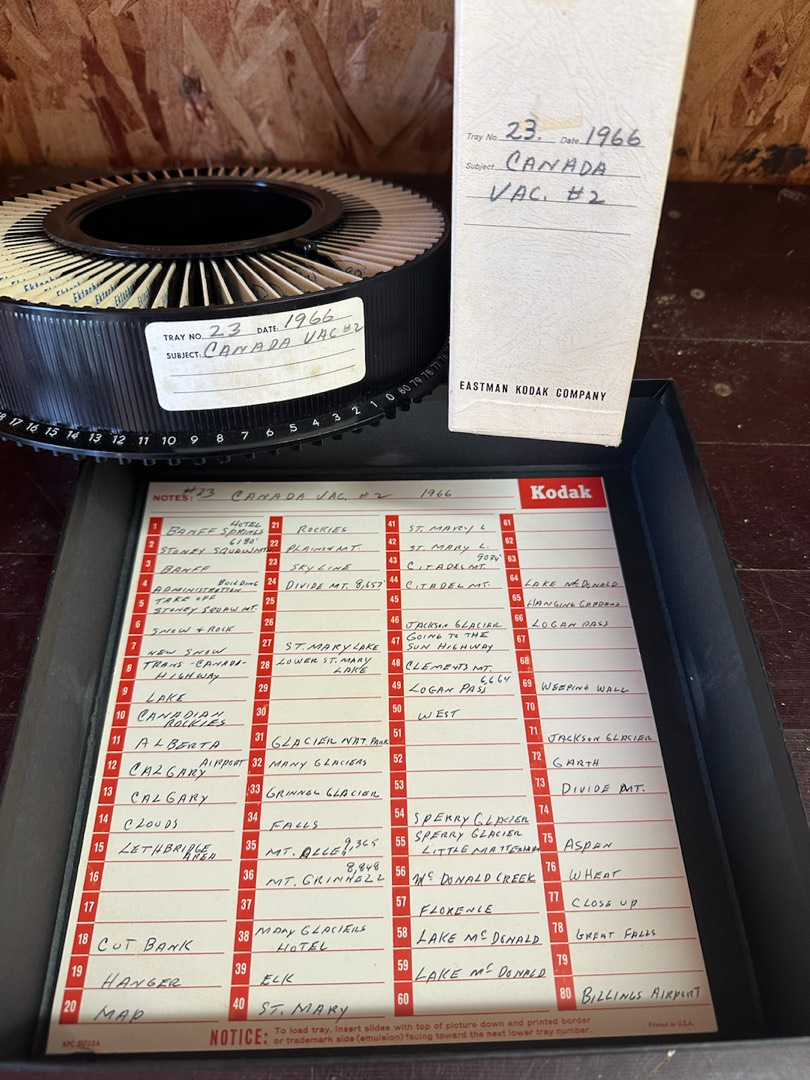 Tray No. 23. Date 1966
Subject CANADA
VAC. #2
EASTMAN KODAK COMPANY
Ektachrome
TRAY NO. 23 DATE: 1966
SUBJECT: CANADA VAC #2
17 16 15 14 13 12 11 10 9 8 7 6 5 4 3 2 1 0 80 79 78 77
NOTES: #23 CANADA VAC. #2 1966
Kodak
1 BANFF SPRINGS HOTEL
2 STONEY SQUAW MT. 6180'
3 BANFF
4 ADMINISTRATION BUILDING
5 TAKE OFF
STONEY SQUAW MT.
6 SNOW & ROCK
7 NEW SNOW
8 TRANS-CANADA-
HIGHWAY
9 LAKE
10 CANADIAN
ROCKIES
11 ALBERTA
12 CALGARY AIRPORT
13 CALGARY
14 CLOUDS
15 LETHBRIDGE
AREA
16
17
18 CUT BANK
19 HANGER
20 MAP
21 ROCKIES
22 PLAINS & MT.
23 SKYLINE
24 DIVIDE MT. 8,657'
25
26
27 ST. MARY LAKE
28 LOWER ST. MARY
LAKE
29
30
31 GLACIER NAT. PARK
32 MANY GLACIERS
33 GRINNEL GLACIER
34 FALLS
35 MT. ALLEN 9,365
36 MT. GRINNELL 8,848
37
38 MANY GLACIERS
HOTEL
39 ELK
40 ST. MARY
41 ST. MARY L
42 ST. MARY L.
43 CITADEL MT. 9024'
44 CITADEL MT.
45
46 JACKSON GLACIER
47 GOING TO THE
SUN HIGHWAY
48 CLEMENTS MT.
49 LOGAN PASS 6,664
50 WEST
51
52
53
54 SPERRY GLACIER
55 SPERRY GLACIER
LITTLE MATTERHORN
56 McDONALD CREEK
57 FLORENCE
58 LAKE McDONALD
59 LAKE McDONALD
60
61
62
63
64 LAKE McDONALD
65 HANGING GARDENS
66 LOGAN PASS
67
68
69 WEEPING WALL
70
71 JACKSON GLACIER
72 GARTH
73 DIVIDE MT.
74
75 ASPEN
76 WHEAT
77 CLOSE UP
78 GREAT FALLS
79
80 BILLINGS AIRPORT
NOTICE: To load tray, insert slides with top of picture down and printed border
or trademark side (emulsion) facing toward the next lower tray number.
Printed in U.S.A.